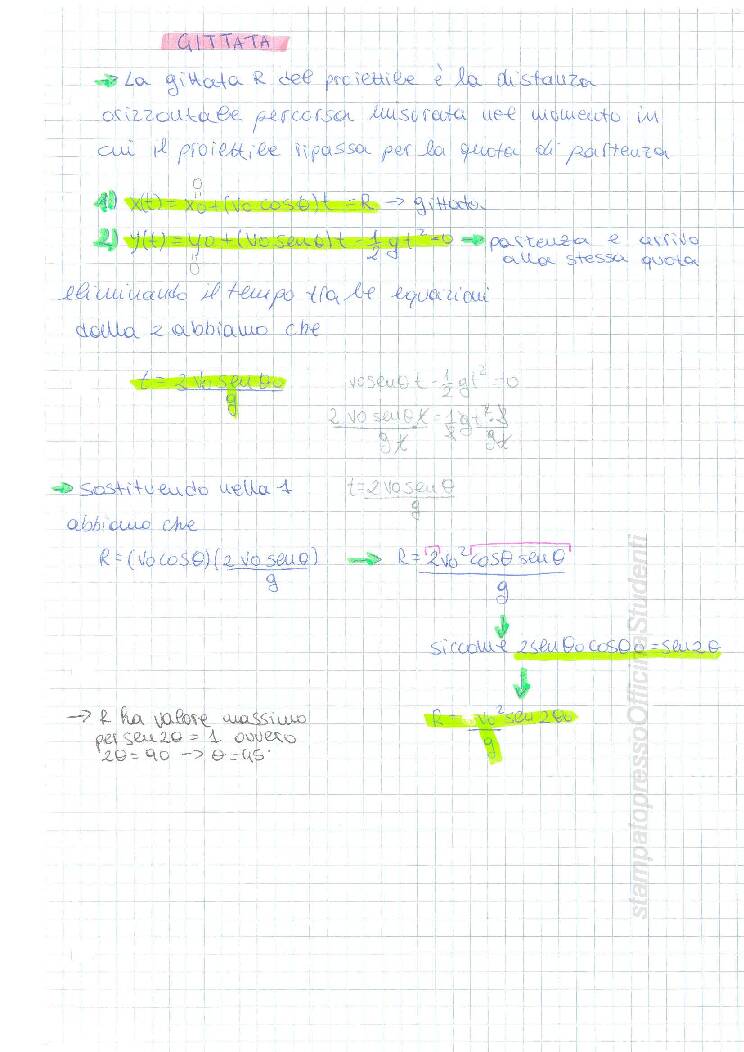 GITTATA
→ La gittata R del proiettile è la distanza
orizzontale percorsa misurata nel momento in
cui il proiettile ripassa per la quota di partenza
0
1) x(t) = x0 + (v0 cosθ)t = R → gittata
2) y(t) = y0 + (v0 senθ)t - 1/2 gt² = 0 → partenza e arrivo
alla stessa quota
0
eliminando il tempo tra le equazioni
dalla 2 abbiamo che
t = 2 v0 senθ0 / g
v0 senθ t - 1/2 gt² = 0
2 v0 senθ t / g t = 1/2 g t² · 2 / g t
→ Sostituendo nella 1
t = 2 v0 senθ / g
abbiamo che
R = (v0 cosθ)(2 v0 senθ / g) → R = 2v0² cosθ senθ / g
↓
siccome 2senθ0 cosθ0 = sen2θ
↓
R = v0² sen2θ0 / g
→ R ha valore massimo
per sen2θ = 1 ovvero
2θ = 90 → θ = 45°
stampatopressoOfficinaStudenti